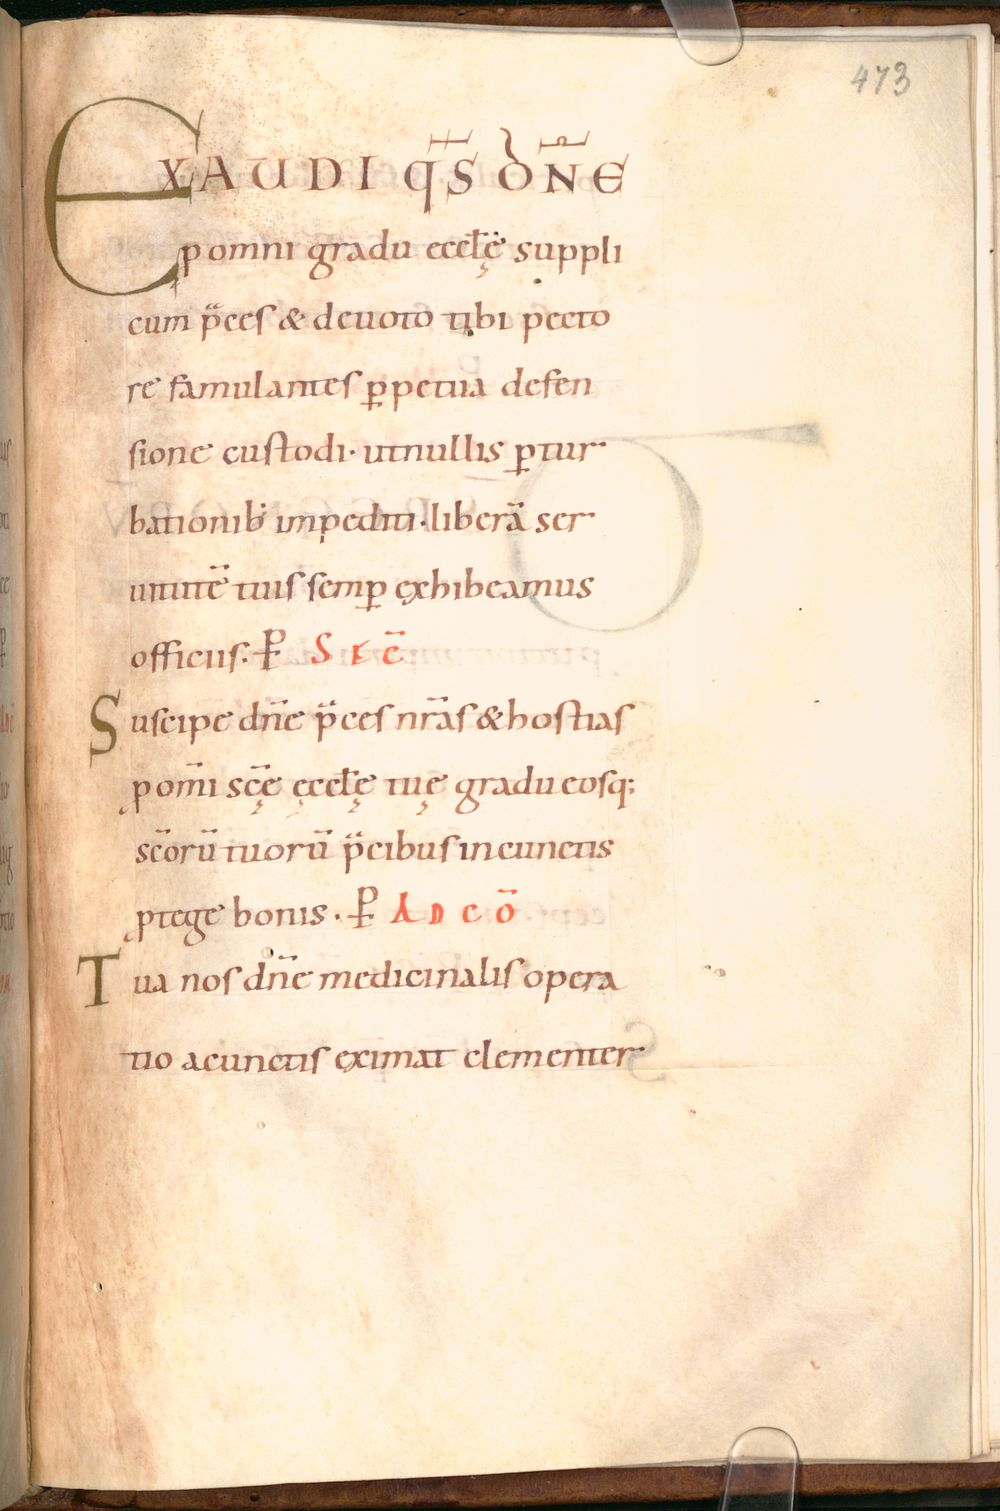 473
EXAUDI qs̄ DN̄E
p omni gradu eccł̄ę suppli
cum p̄ces & deuoto tibi pecto
re famulantes ꝑpetua defen
sione custodi· ut nullis ꝑtur
bationib; impediti· liberā ser
uitutē tuis semꝑ exhibeamus
officiis· P̱ SEC̄
Suscipe dn̄e p̄ces nr̄as & hostias
p om̄i sc̄ę ęccł̄ę tuę gradu eosq;
sc̄orū tuorū p̄cibus in cunctis
ꝓtege bonis· P̱ AD CŌ
Tua nos dn̄e medicinalis opera
tio a cunctis eximat clementer